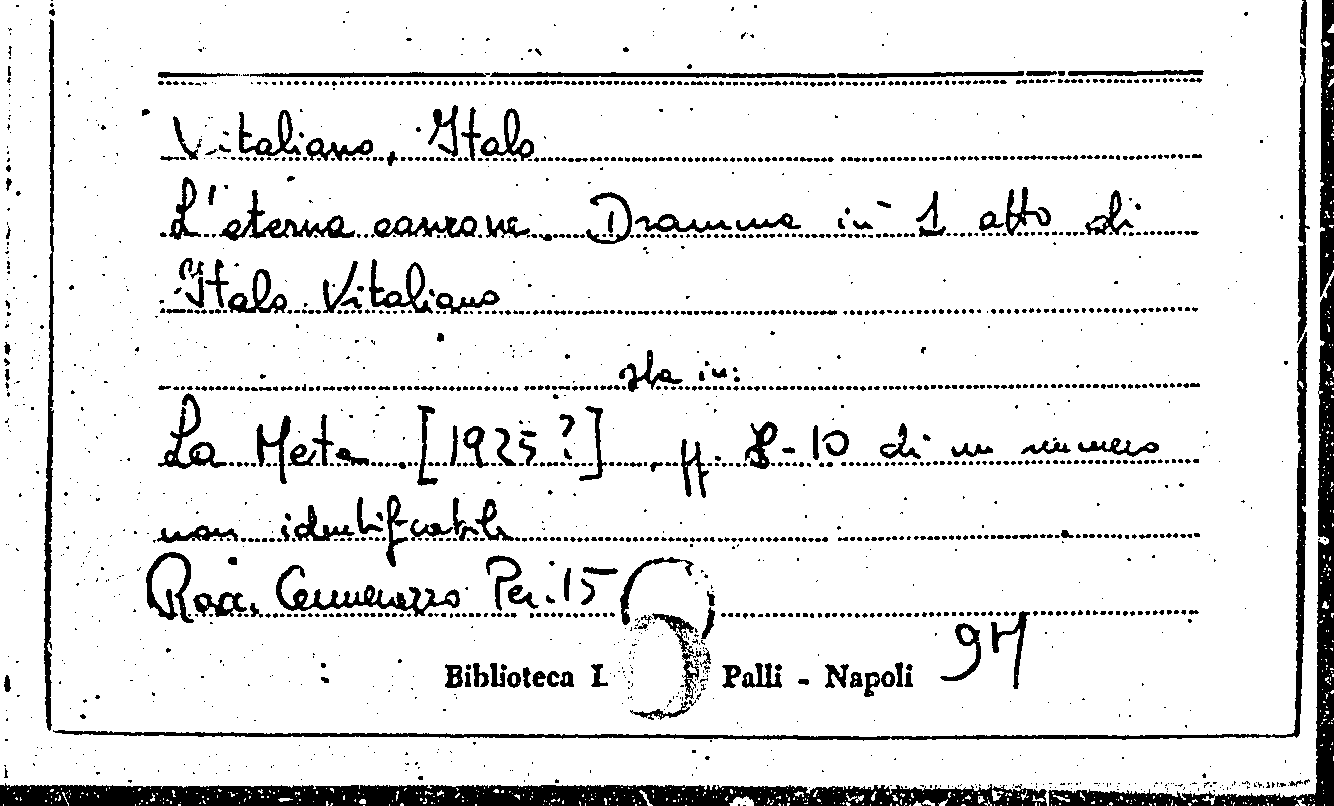 Vitaliano, Italo
L'eterna canzone. Dramma in 1 atto di
Italo Vitaliano
sta in:
La Meta [1925?], pp. 8-10 di un numero
non identificabile
Racc. Per. 15
Biblioteca L Palli - Napoli